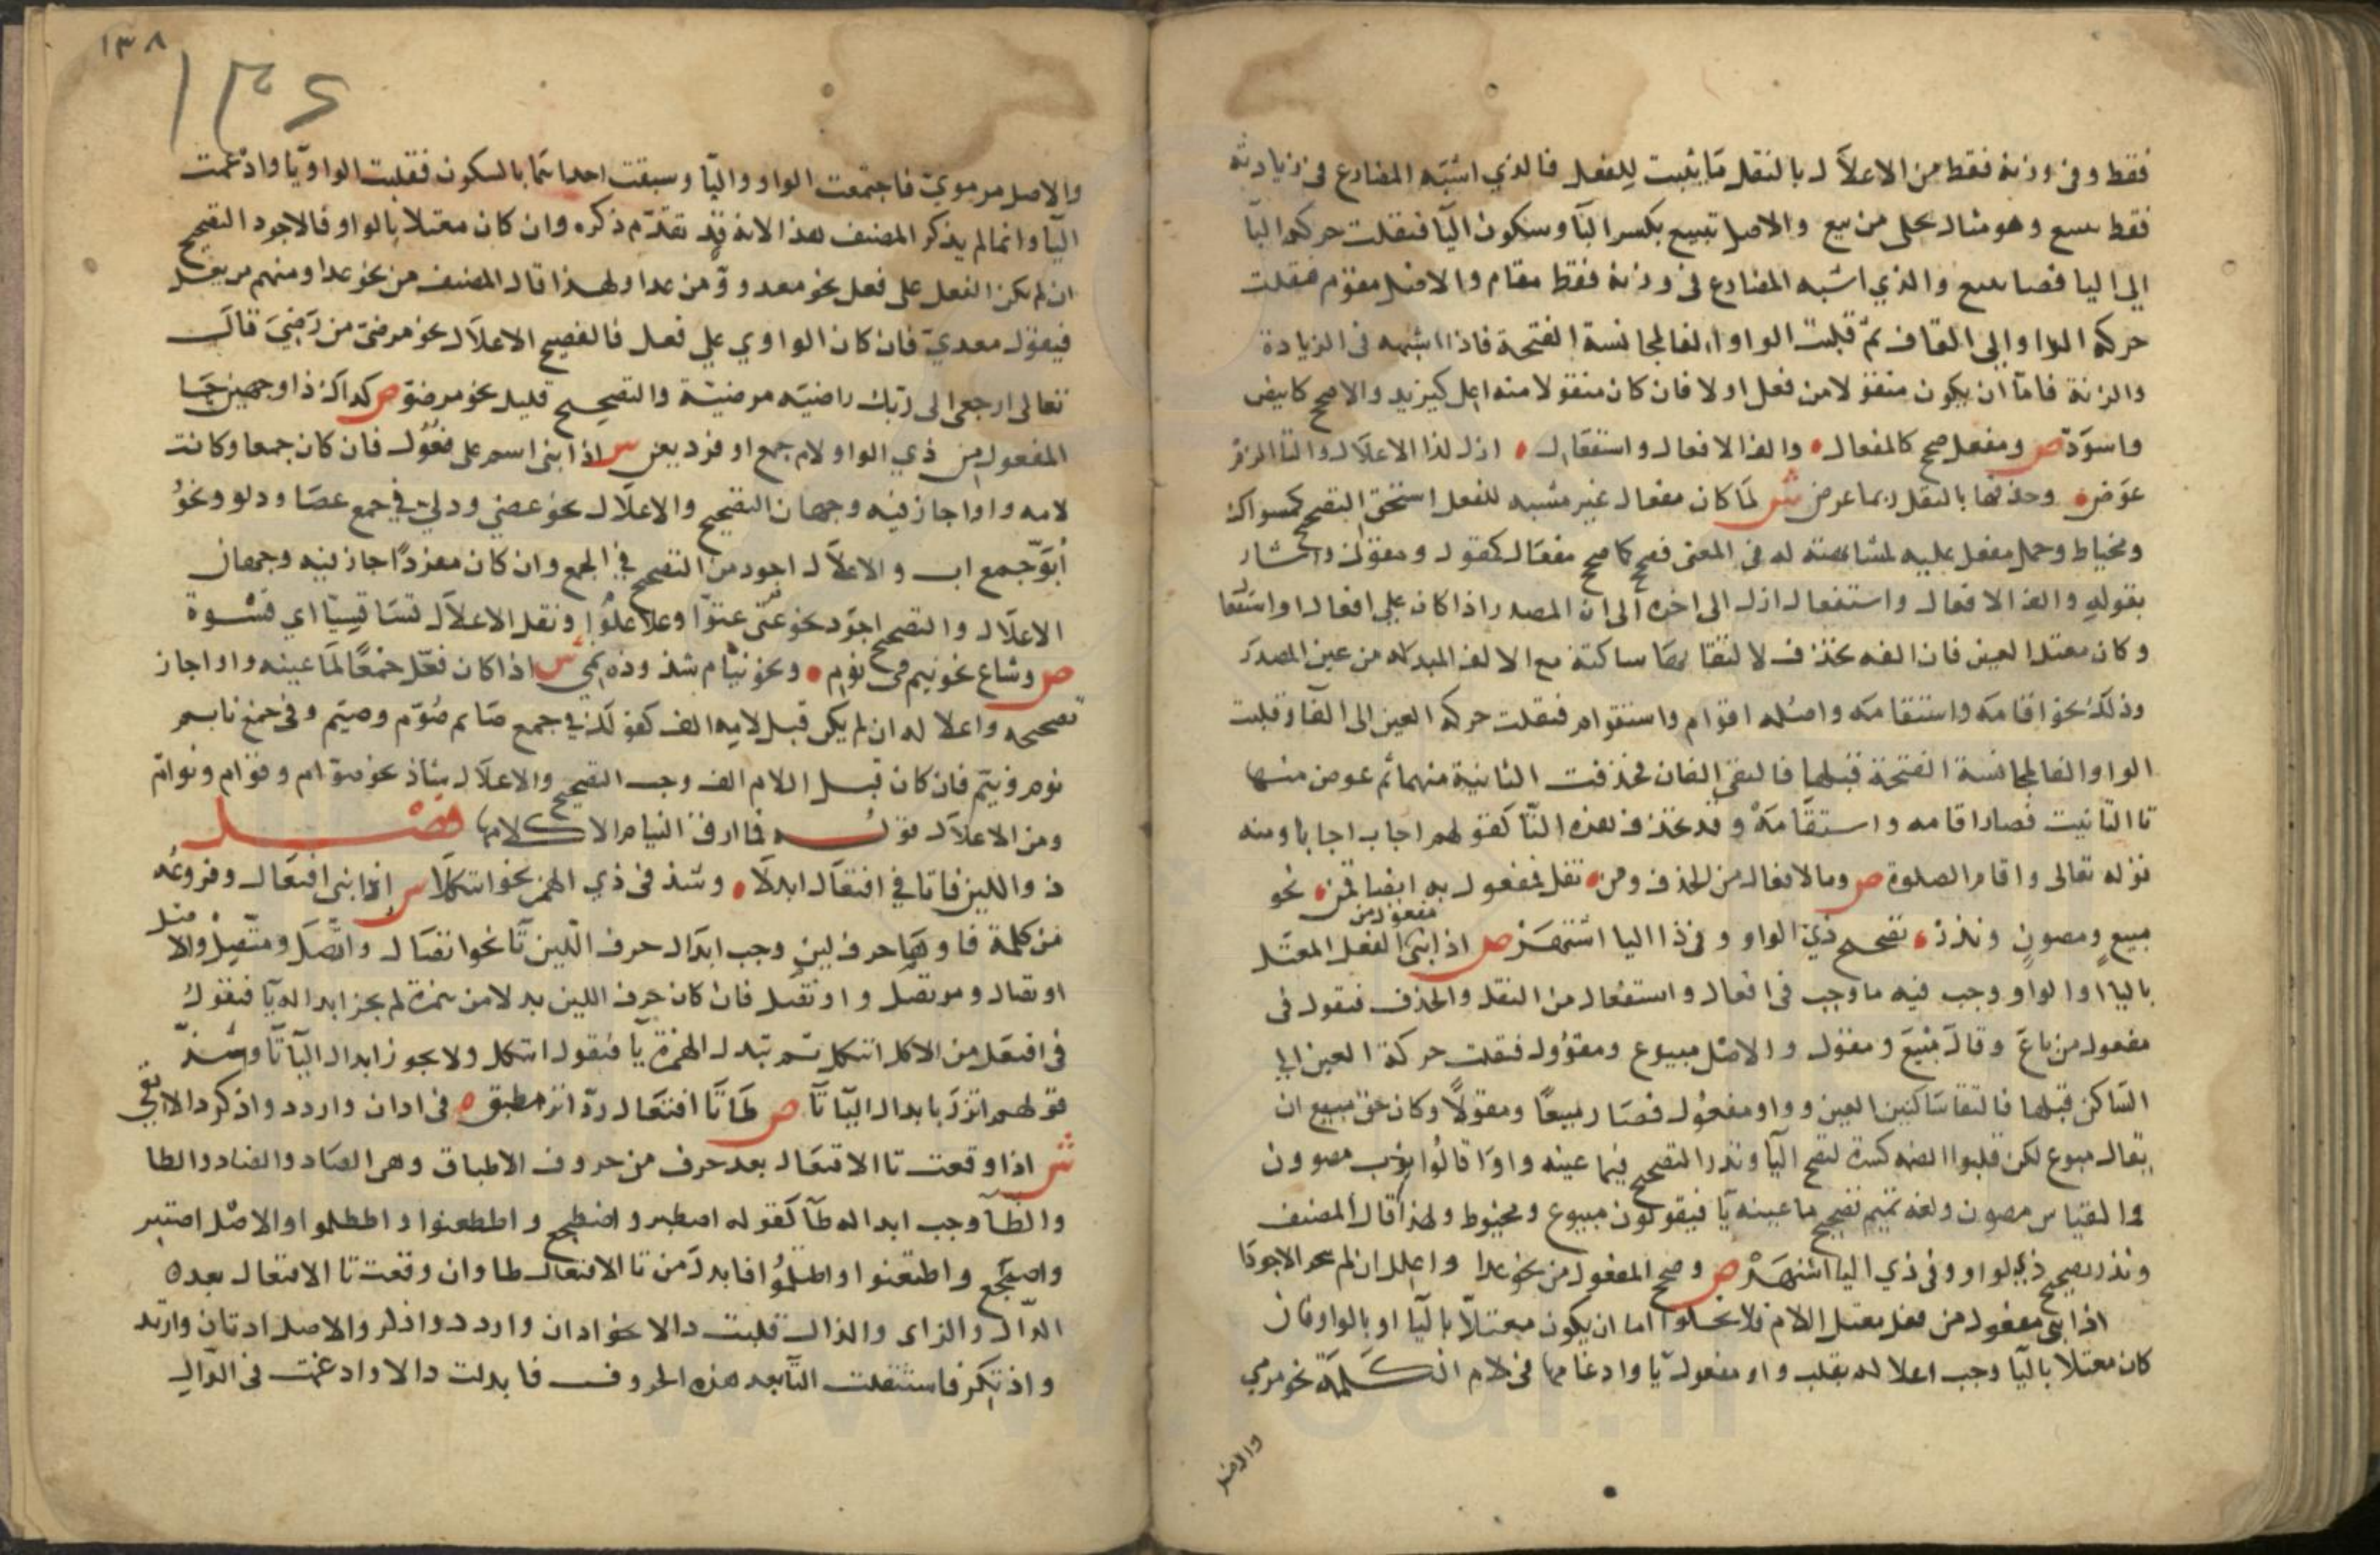 فقط وفى وزنه فقط من الاعلال بالنقل ما يثبت للفعل فالذي اشبه المضارع فى زيادته
فقط تبيع وهو مثال تحلى من بيع والاصل تبيع بكسر الباء وسكون اليا فنقلت حركة اليا
الى اليا فصار تبيع والذي اشبه المضارع فى وزنه فقط مقام والاصل مقوم فنقلت
حركة الواو الى القاف ثم قلبت الواو الفا لمجانسة الفتحة فاذا اشبهه فى الزيادة
والزنة فاما ان يكون منقولا من فعل اولا فان كان منقولا منه اعل كيزيد والاصح كابيض
واسود ص ومفعل صحح كالمفعال والف الافعال واستفعال ازل لذا الاعلال والتا الزم
عوض وحذفها بالنقل ربما عرض ش لما كان مفعال غير مشبه للفعل استحق التصحيح كمسواك
ومخياط وحمل مفعل عليه لمشابهته له فى المعنى فصحح كما صحح مفعال كمقول ومقوال واشار
بقوله والف الافعال واستفعال ازل الى اخره الى ان المصدر اذا كان على افعال او استفعا
وكان معتل العين فان الفه تحذف لالتقائها ساكنة مع الالف المبدلة من عين المصدر
وذلك نحو اقامة واستقامة واصله اقوام واستقوام فنقلت حركة العين الى الفا وقلبت
الواو الفا لمجانسة الفتحة قبلها فالتقى الفان فحذفت الثانية منهما ثم عوض منها
تا التانيث فصار اقامه واستقامة وقد تحذف هذه التا كقولهم اجاب اجابا ومنه
قوله تعالى واقام الصلوة ص وما لافعال من الحذف ومن نقل فمفعول به ايضا قمن نحو
مبيع ومصون وندر تصحيح ذي الواو وفى ذا اليا اشتهر ص اذا بنى مفعول من الفعل المعتل
باليا او الواو وجب فيه ما وجب فى افعال واستفعال من النقل والحذف فيقول فى
مفعول من باع وقال مبيع ومقول والاصل مبيوع ومقوول فنقلت حركة العين الى
الساكن قبلها فالتقا ساكنين العين وواو مفعول فصار مبيعا ومقولا وكان حق مبيع ان
يقال مبوع لكن قلبوا الضمه كسرة لتصح اليا وندر التصحيح فيما عينه واو قالوا ثوب مصوون
والقياس مصون ولغه تميم تصحيح ما عينه يا فيقولون مبيوع ومخيوط ولهذا قال المصنف
وندر تصحيح ذي الواو وفى ذي اليا اشتهر ص وصحح المفعول من نحو عدا واعلل ان لم تتحر الاجودا
اذا بنى مفعول من فعل معتل اللام فلا يخلوا اما ان يكون معتلا باليا او بالواو فان
كان معتلا باليا وجب اعلاله بقلب واو مفعول يا وادغامها فى لام الكلمة نحو مرمي
والاصل
١٣٨
١٣٤
والاصل مرموي فاجتمعت الواو واليا وسبقت احداهما بالسكون فقلبت الواو يا وادغمت
اليا وانما لم يذكر المصنف هذا لانه قد تقدم ذكره وان كان معتلا بالواو فالاجود التصحيح
ان لم يكن الفعل على فعل نحو معدو من عدا ولهذا قال المصنف من نحو عدا ومنهم من يعل
فيقول معدي فان كان الواوي على فعل فالفصيح الاعلال نحو مرضى من رضي قال
تعالى ارجعى الى ربك راضيه مرضية والتصحيح قليل نحو مرضو ص كذاك ذا وجهين جا
المفعول من ذي الواو لام جمع او فرد يعن ش اذا بنى اسم على فعول فان كان جمعا وكانت
لامه واوا جاز فيه وجهان التصحيح والاعلال نحو عصي ودلي فى جمع عصا ودلو ونحو
ابو جمع اب والاعلال اجود من التصحيح فى الجمع وان كان مفردا جاز فيه وجهان
الاعلال والتصحيح اجود نحو عتى عتوا وعلا علوا ونقل الاعلال قسا قسيا اي قسوة
ص وشاع نحو نيم فى نوم ونحو نيام شذوذه نمي ش اذا كان فعل جمعا لما عينه واو اجاز
تصحيحه واعلاله ان لم يكن قبل لامه الف كقولك فى جمع صايم صوم وصيم وفى جمع نايم
نوم ونيم فان كان قبل اللام الف وجب التصحيح والاعلال شاذ نحو صوام وقوام ونوام
ومن الاعلال قوله فما ارق النيام الا كلامها فصل
ذو اللين فا تا فى افتعال ابدلا وشذ فى ذي الهمز نحو ائتكلا ش اذا بنى افتعال وفروعه
من كلمة فاوها حرف لين وجب ابدال حرف اللين تا نحو اتصال واتصل ومتصل والاصل
اوتصال وموتصل واوتصل فان كان حرف اللين بدلا من همزة لم يجز ابداله يا فيقول
فى افتعل من الاكل ائتكل ثم تبدل الهمزة يا فيقول ايتكل ولا يجوز ابدال اليا تا وشذ
قولهم اتزر بابدال اليا تا ص طا تا افتعال رد اثر مطبق فى ادان وازدد وادكر دالا بقي
ش اذا وقعت تا الافتعال بعد حرف من حروف الاطباق وهى الصاد والضاد والطا
والظا وجب ابداله طا كقوله اصطبر واضطجع واططعنوا واظطلموا والاصل اصتبر
واضتجع واطتعنوا واظتلموا فابدل من تا الافتعال طا وان وقعت تا الافتعال بعده
الدال والزاى والذال قلبت دالا نحو ادان وازدد واذكر والاصل ادتان وازتد
واذتكر فاستثقلت التا بعد هذه الحروف فابدلت دالا وادغمت فى الدال